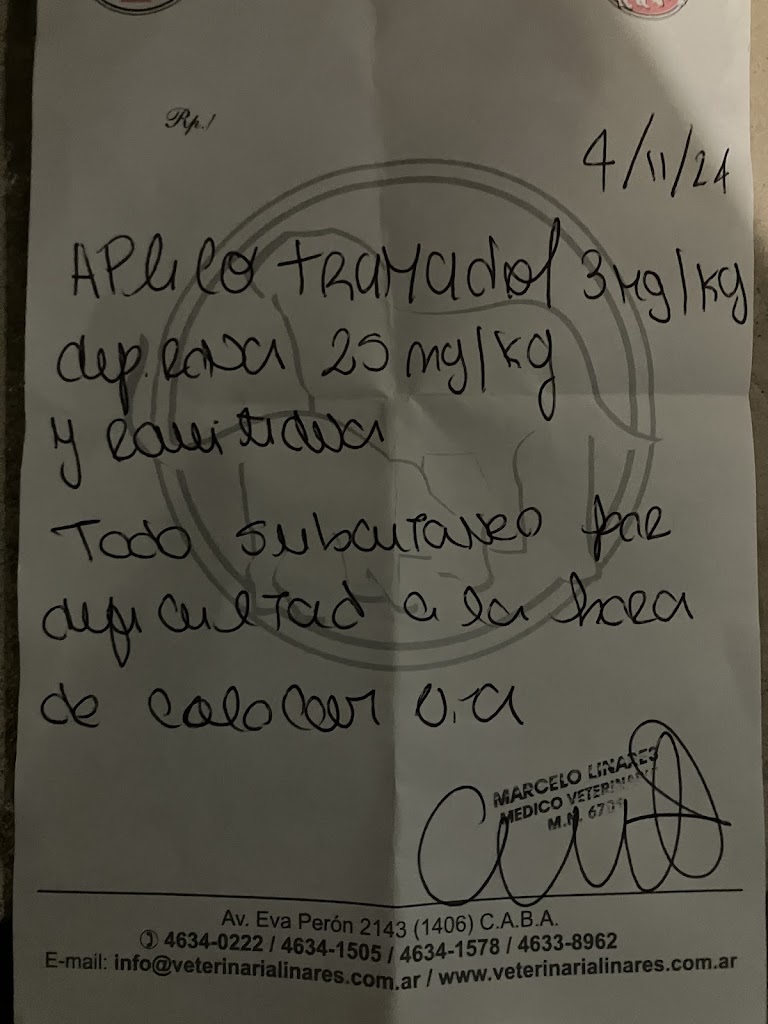 Rp./
4/11/24
APlico tramadol 3 mg/kg
dipirona 25 mg/kg
y ranitidina
Todo subcutaneo por
dificultad a la hora
de colocar via
MARCELO LINARES
MEDICO VETERINARIO
M.N.
Av. Eva Perón 2143 (1406) C.A.B.A.
4634-0222 / 4634-1505 / 4634-1578 / 4633-8962
E-mail: info@veterinarialinares.com.ar / www.veterinarialinares.com.ar